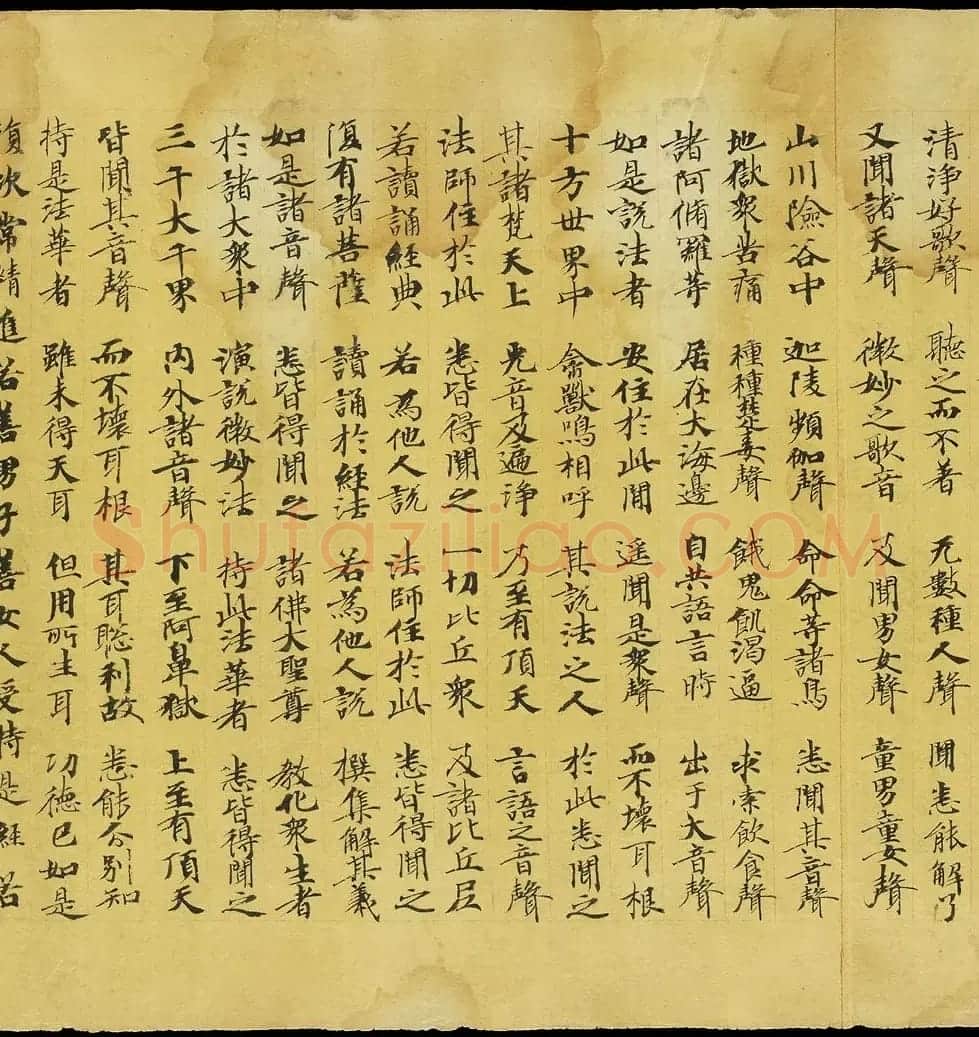 清淨好歌聲 聽之而不著 无數種人聲 聞悉能解了
又聞諸天聲 微妙之歌音 及聞男女聲 童男童女聲
山川險谷中 迦陵頻伽聲 命命等諸鳥 悉聞其音聲
地獄衆苦痛 種種楚毒聲 餓鬼飢渴逼 求索飲食聲
諸阿脩羅等 居在大海邊 自共語言時 出于大音聲
如是說法者 安住於此間 遥聞是衆聲 而不壞耳根
十方世界中 禽獸鳴相呼 其說法之人 於此悉聞之
其諸梵天上 光音及遍淨 乃至有頂天 言語之音聲
法師住於此 悉皆得聞之 一切比丘衆 及諸比丘尼
若讀誦經典 若為他人說 法師住於此 悉皆得聞之
復有諸菩薩 讀誦於経法 若為他人說 撰集解其義
如是諸音聲 悉皆得聞之 諸佛大聖尊 教化衆生者
於諸大衆中 演說微妙法 持此法華者 悉皆得聞之
三千大千界 内外諸音聲 下至阿鼻獄 上至有頂天
皆聞其音聲 而不壞耳根 其耳聡利故 悉能分別知
持是法華者 雖未得天耳 但用所生耳 功德已如是
復次常精進若善男子善女人受持是経若
Shufaziliao.COM